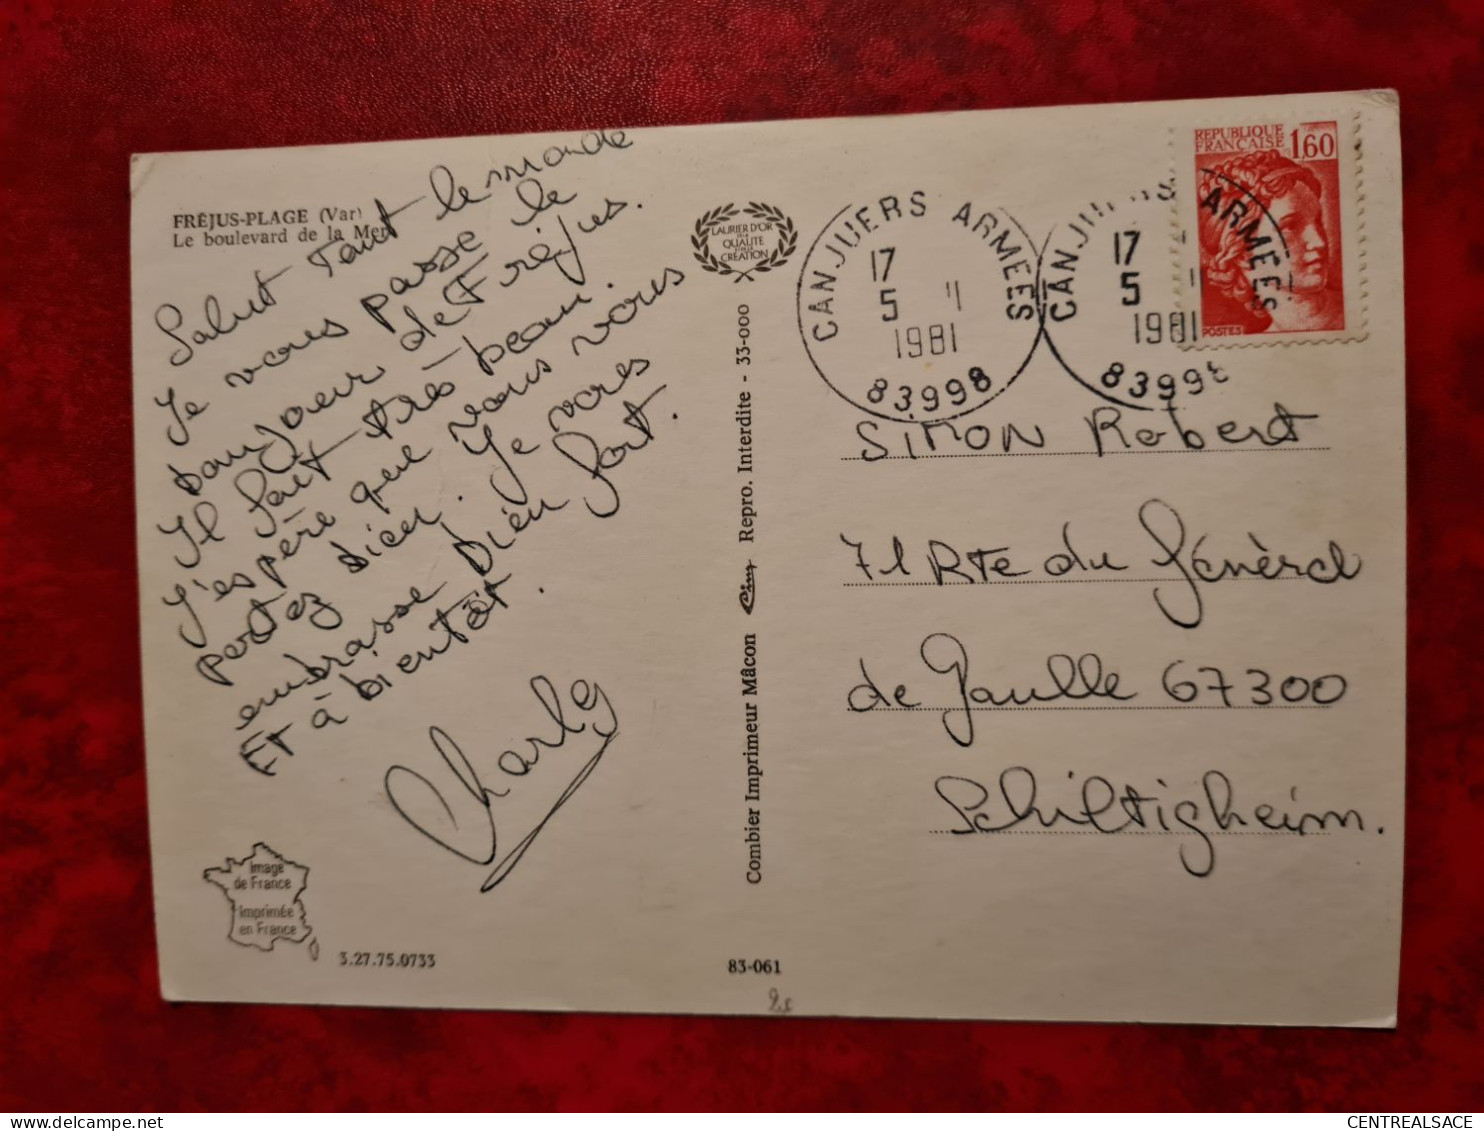 FRÉJUS-PLAGE (Var)
Le boulevard de la Mer
Salut Tout le monde
Je vous passe le
bonjour de Fréjus.
Il fait très beau.
J'espère que vous vous
portez bien. Je vous
embrasse bien fort.
Et à bientôt.
Charly
LAURIER D'OR
DE LA
QUALITÉ
CRÉATION
Combier Imprimeur Mâcon Cim Repro. Interdite - 33-000
Image
de France
Imprimée
en France
3.27.75.0733
83-061
CANJUERS ARMÉES
17
5 - 11
1981
83998
CANJUERS ARMÉES
17
5
1981
83998
REPUBLIQUE
FRANÇAISE
1,60
POSTES
SIMON Robert
71 Rte du Général
de Gaulle 67300
Schiltigheim.
CENTREALSACE